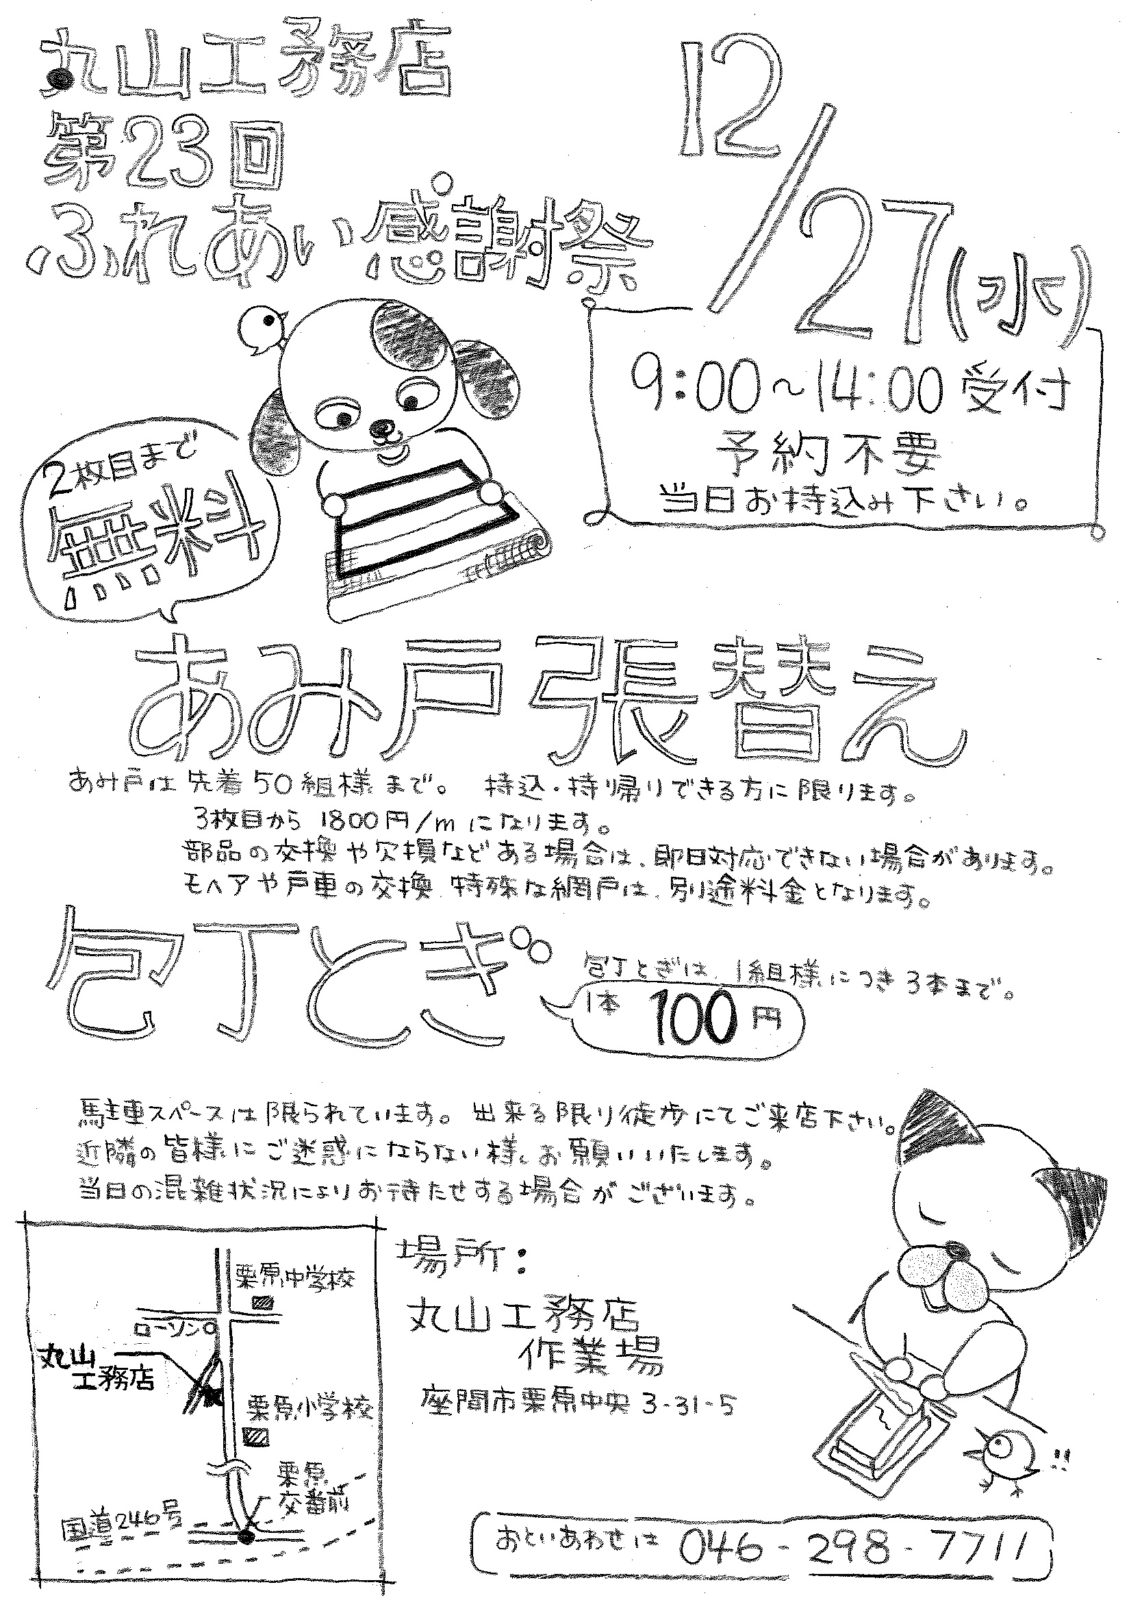 丸山工務店
第23回
ふれあい感謝祭
12/27(水)
9:00~14:00 受付
予約不要
当日お持込み下さい。
2枚目まで
無料
あみ戸張替え
あみ戸は先着50組様まで。 持込・持帰りできる方に限ります。
3枚目から 1800円/m になります。
部品の交換や欠損などある場合は、即日対応できない場合があります。
モヘアや戸車の交換、特殊な網戸は、別途料金となります。
包丁とぎ
包丁とぎは、1組様につき3本まで。
1本 100円
駐車スペースは限られています。出来る限り徒歩にてご来店下さい。
近隣の皆様にご迷惑にならない様、お願いいたします。
当日の混雑状況によりお待たせする場合がございます。
栗原中学校
ローソン
丸山
工務店
栗原小学校
栗原
交番前
国道246号
場所:
丸山工務店
作業場
座間市栗原中央 3-31-5
!!
おといあわせは 046-298-7711